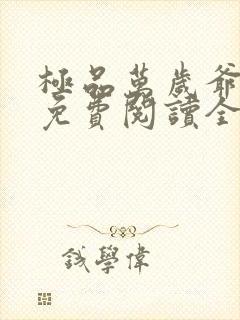 極品萬歲爺
免費閱讀全
錢學偉